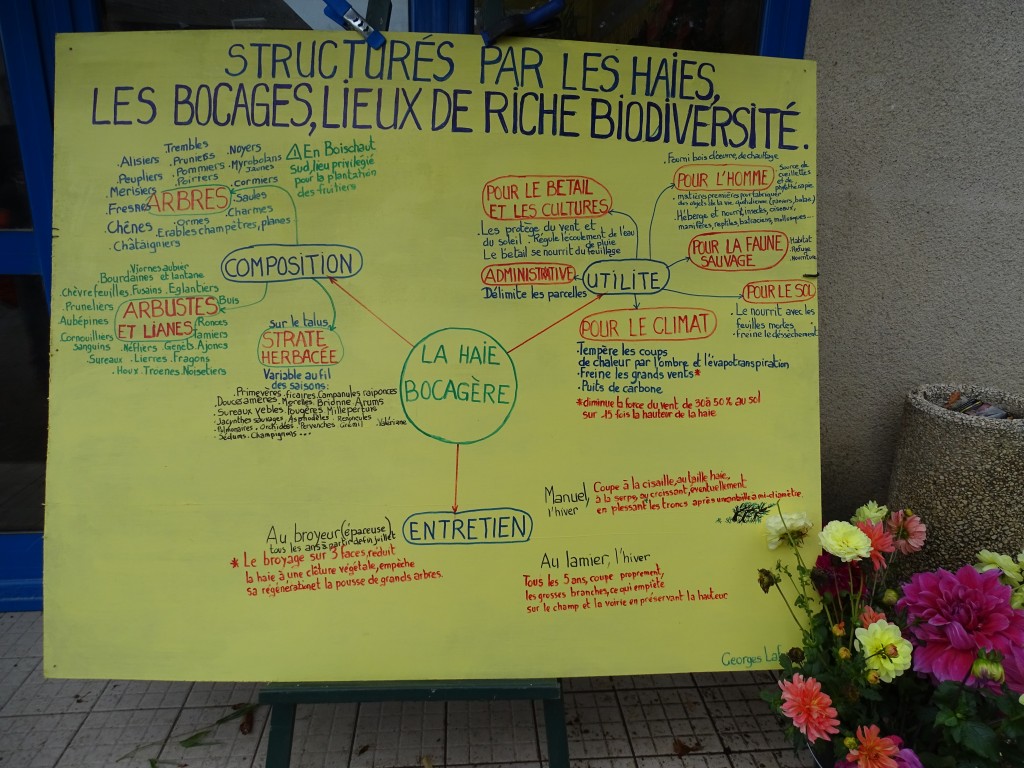 STRUCTURÉS PAR LES HAIES,
LES BOCAGES, LIEUX DE RICHE BIODIVERSITÉ.
Trembles
. Noyers
. Alisiers
. Pruniers
. Myrobolans
Jaunes
. Peupliers
. Pommiers
. Poiriers
. cormiers
. Merisiers
. Saules
. Fresnes
ARBRES
. Charmes
. Chênes
. Ormes
. Erables champêtres, planes
. Châtaigniers
⚠ En Boischaut
sud, lieu privilégié
pour la plantation
des fruitiers
COMPOSITION
. Viornes aubier
et lantane
. Bourdaines
. Chèvrefeuilles
. Fusains
. Eglantiers
. Pruneliers
ARBUSTES
ET LIANES
. Buis
. Aubépines
. Ronces
. Cornouillers
sanguins
. Tamiers
. Néfliers
. Genêts
. Ajoncs
. Sureaux
. Lierres
. Fragons
. Houx
. Troènes
. Noisetiers
Sur le talus
STRATE
HERBACÉE
Variable au fil
des saisons:
. Primevères . ficaires . Campanules raiponces
. Douces amères . Morelles . Brionne . Arums
. Sureaux yebles . Fougères . Millepertuis
. Jacinthes sauvages . Asphodèles . Renoncules
. Pulmonaires . Orchidées . Pervenches . Grémil . Valériane
. Sédums . Champignons...
LA HAIE
BOCAGÈRE
POUR LE BETAIL
ET LES CULTURES
. Les protège du vent et
du soleil . Régule l'écoulement de l'eau
de pluie
. Le betail se nourrit du feuillage
ADMINISTRATIVE
Délimite les parcelles
UTILITE
. Fourni bois d'œuvre, de chauffage
POUR L'HOMME
. Source de
cueillettes
et de
phytothérapie
. matières premières pour fabriquer
des objets de la vie quotidienne (paniers, balais)
. Héberge et nourrit insectes, oiseaux,
mammifères, reptiles, batraciens, mollusques...
POUR LA FAUNE
SAUVAGE
. Habitat
. Refuge
. Nourriture
POUR LE SOL
. Le nourrit avec les
feuilles mortes
. Freine le déssèchement
POUR LE CLIMAT
. Tempère les coups
de chaleur par l'ombre et l'évapotranspiration
. Freine les grands vents*
. Puits de carbone
* diminue la force du vent de 30 à 50 % au sol
sur 15 fois la hauteur de la haie
ENTRETIEN
Au broyeur (épareuse)
tous les ans à partir de fin juillet
* Le broyage sur 3 faces, réduit
la haie à une clôture végétale, empêche
sa régénération et la pousse de grands arbres.
Manuel,
l'hiver
Coupe à la cisaille, au taille haie,
à la serpe, au croissant, éventuellement
en plessant les troncs après une entaille a mi-diamètre.
Au lamier, l'hiver
Tous les 5 ans, coupe proprement,
les grosses branches, ce qui empiète
sur le champ et la voirie en préservant la hauteur
Georges